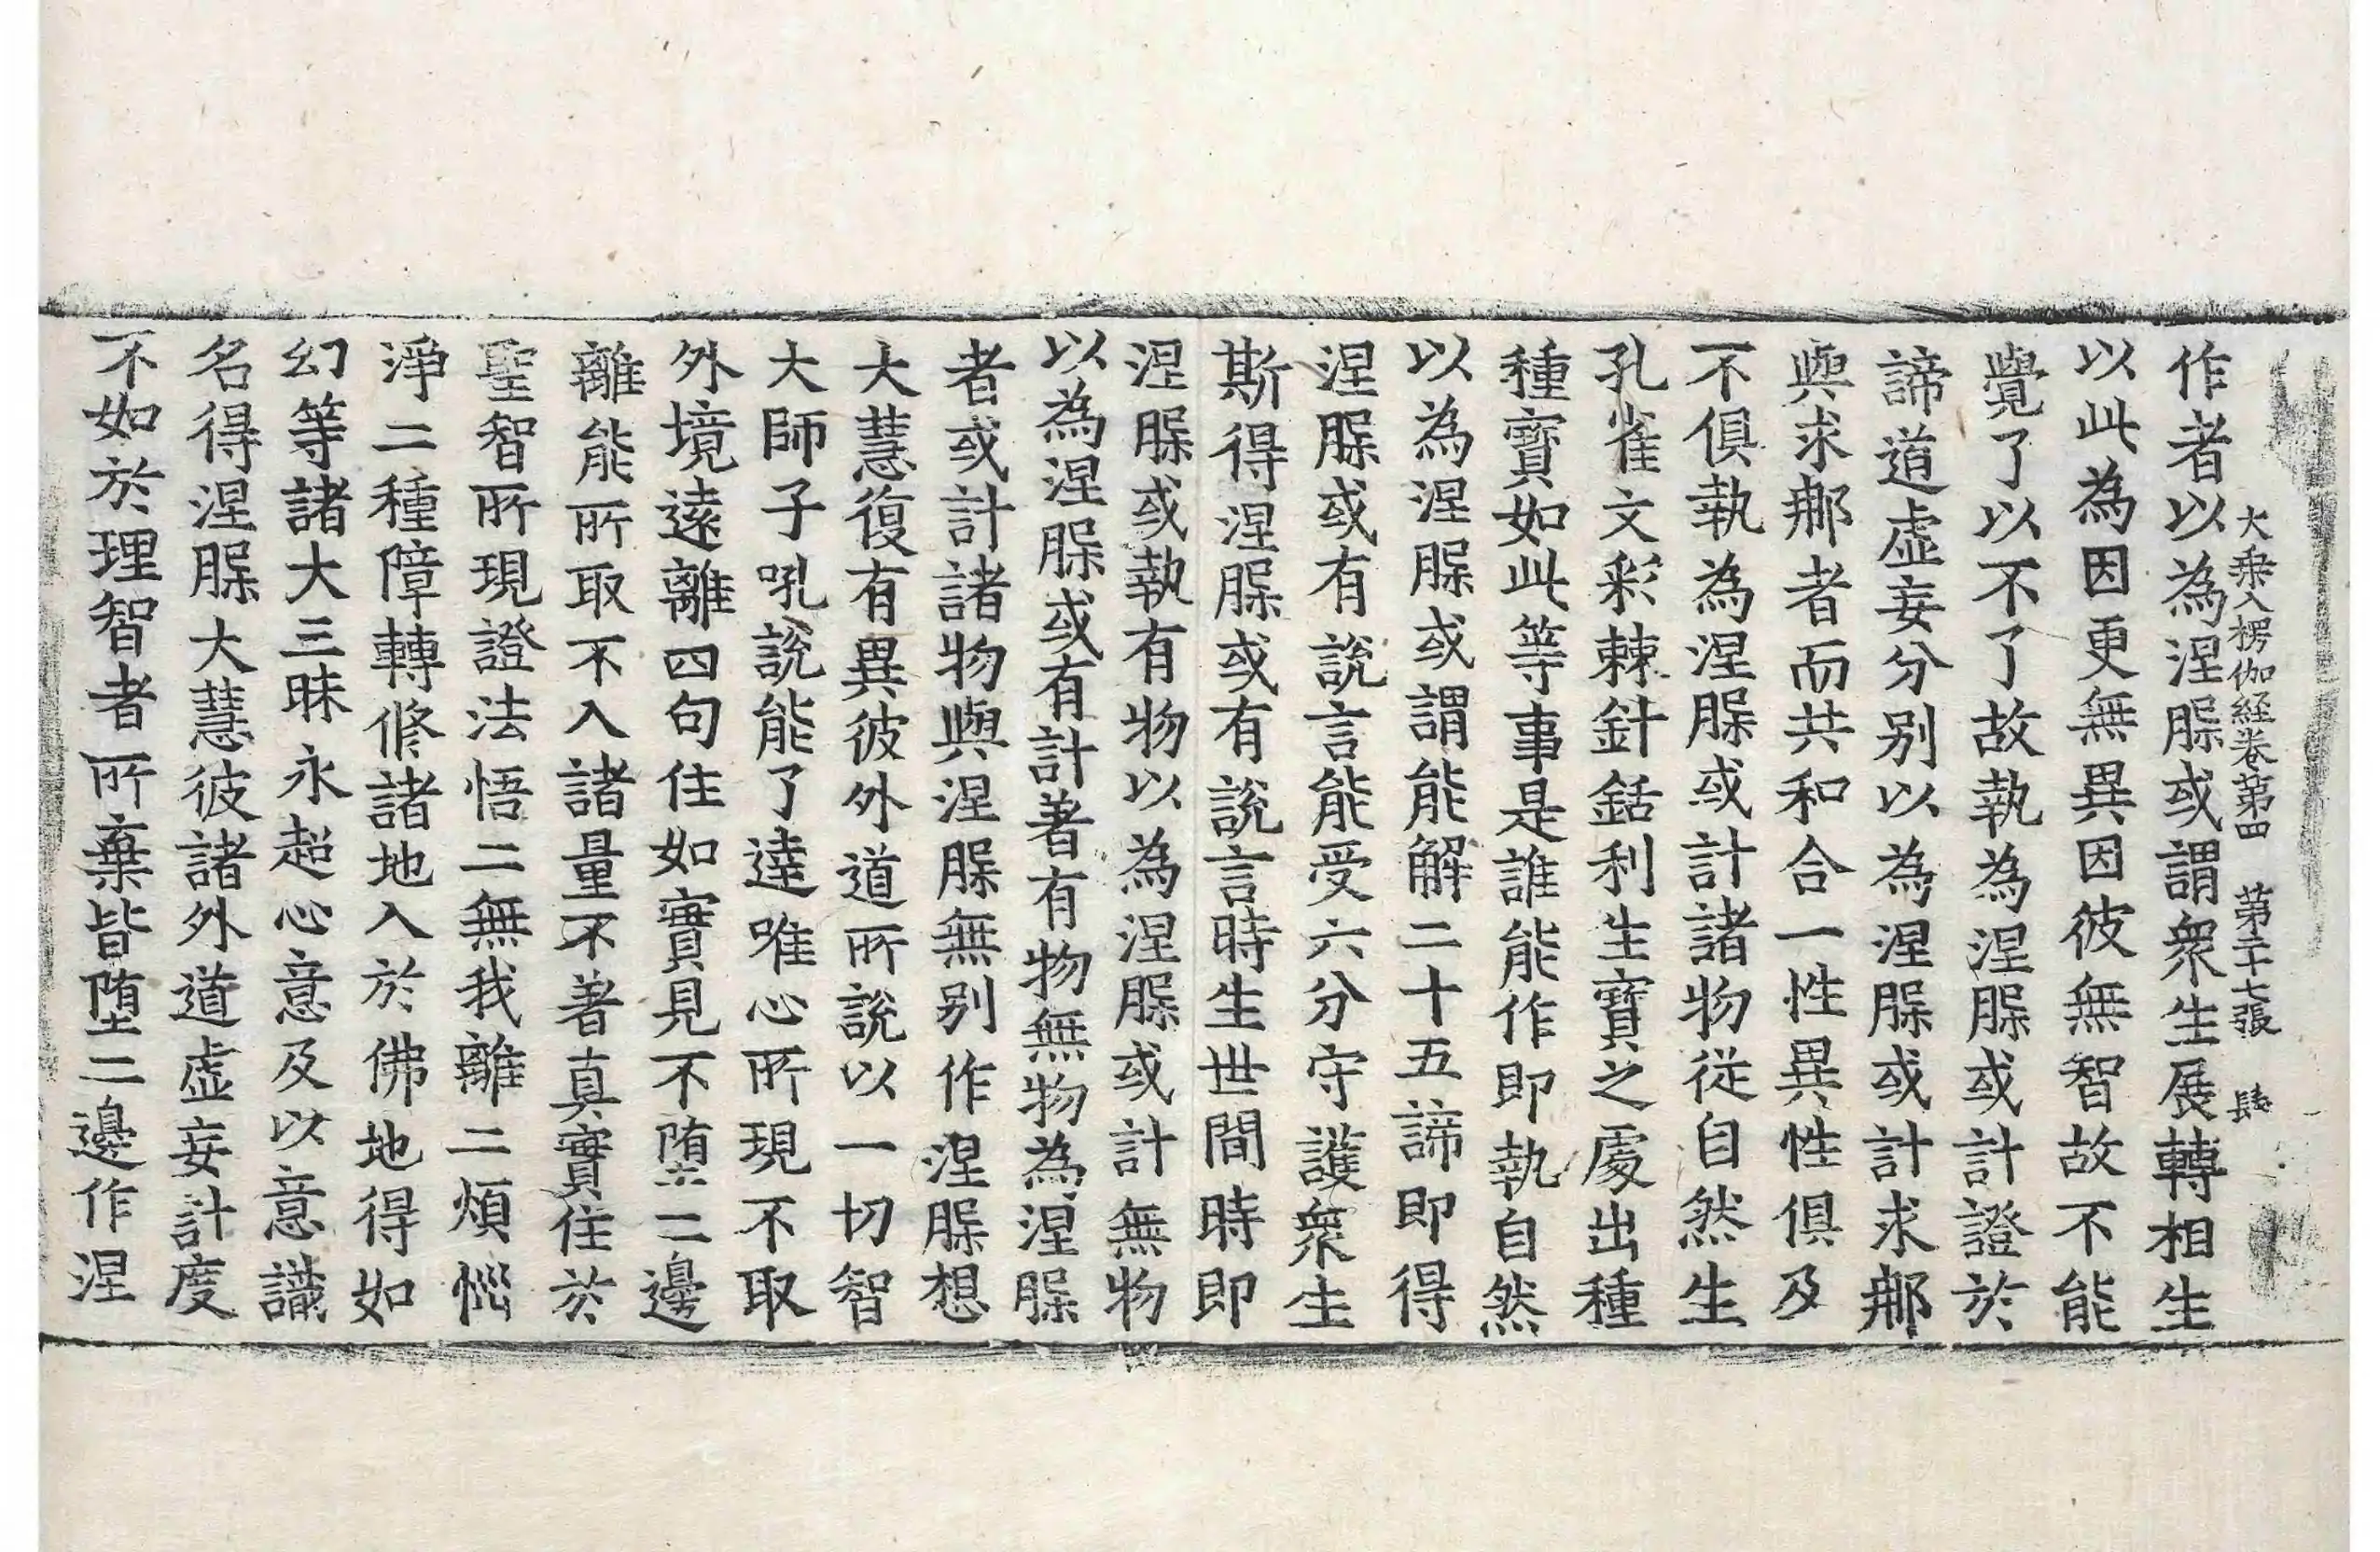 大乘入楞伽経卷第四 第二十七張 㞐
作者以為涅脲或謂衆生展轉相生
以此為因更無異因彼無智故不能
覺了以不了故執為涅脲或計證於
諦道虛妄分别以為涅脲或計求那
與求那者而共和合一性異性俱及
不俱執為涅脲或計諸物從自然生
孔雀文彩棘針銛利生寶之處出種
種寶如此等事是誰能作即執自然
以為涅脲或謂能解二十五諦即得
涅脲或有說言能受六分守護衆生
斯得涅脲或有說言時生世間時即
涅脲或執有物以為涅脲或計無物
以為涅脲或有計著有物無物為涅脲
者或計諸物與涅脲無别作涅脲想
大慧復有異彼外道所說以一切智
大師子吼說能了達唯心所現不取
外境遠離四句住如實見不堕二邊
離能所取不入諸量不著真實住於
聖智所現證法悟二無我離二煩惱
淨二種障轉修諸地入於佛地得如
幻等諸大三昧永超心意及以意識
名得涅脲大慧彼諸外道虛妄計度
不如於理智者所棄皆堕二邊作涅